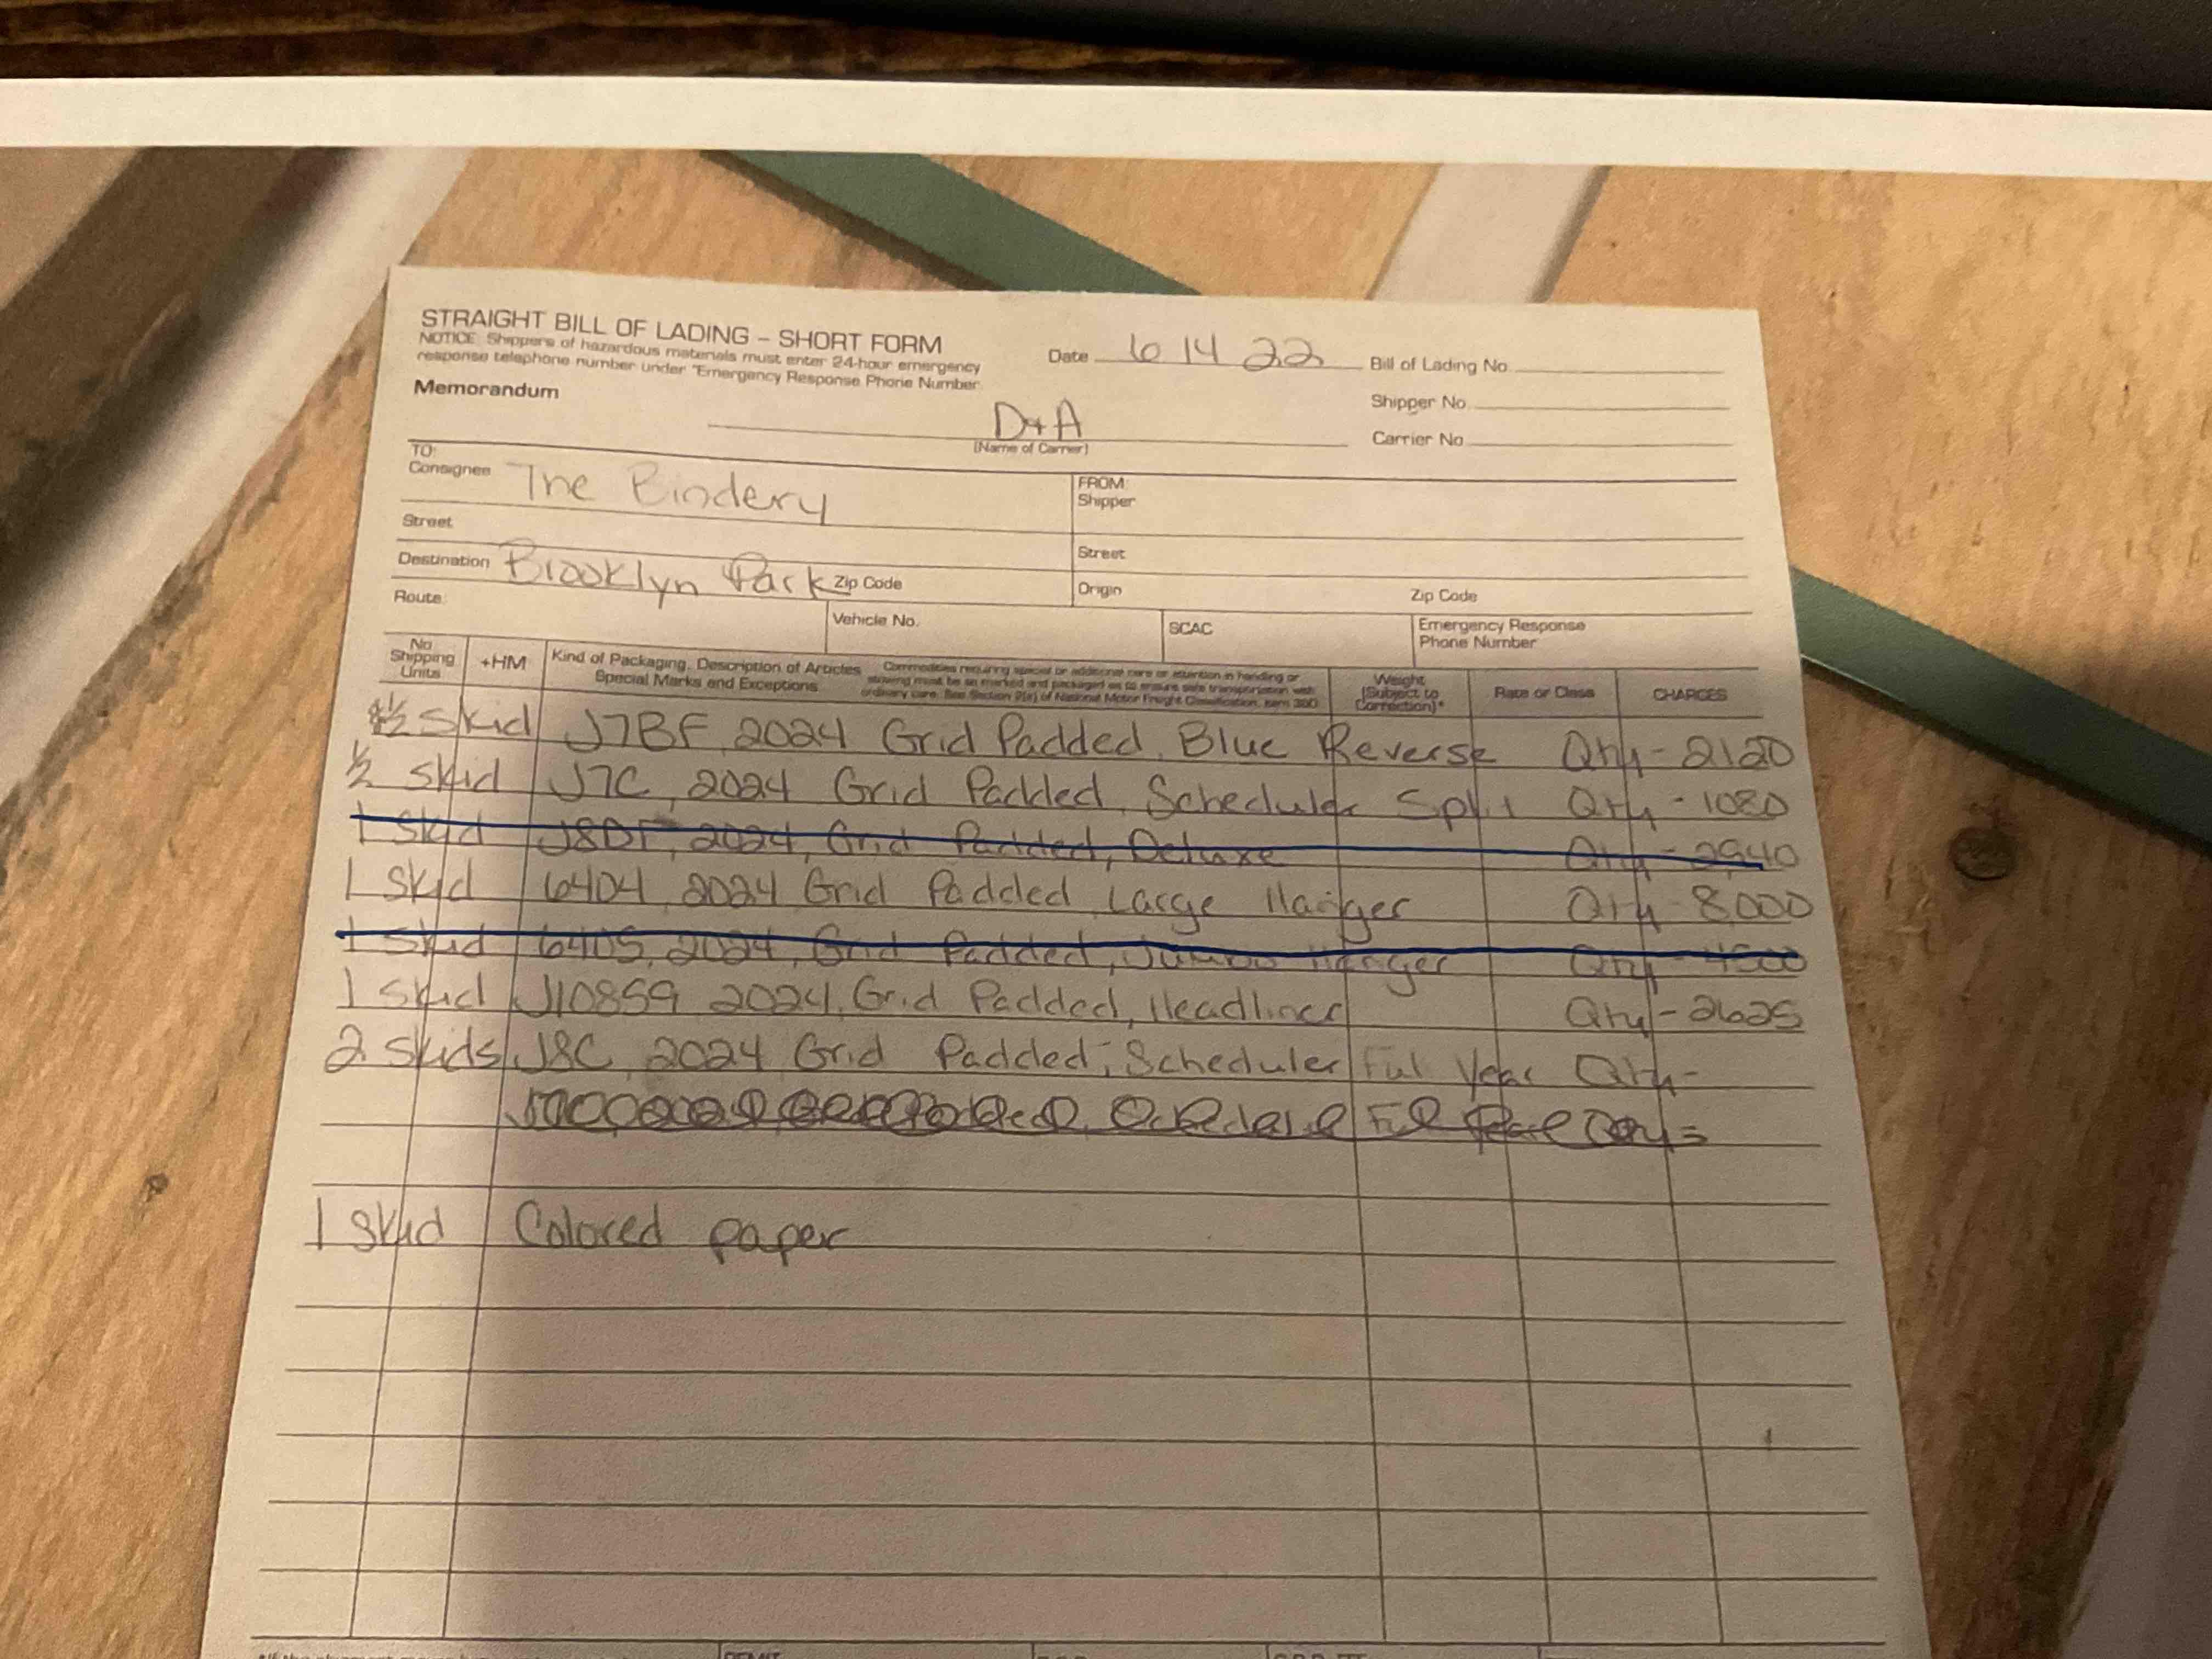 STRAIGHT BILL OF LADING – SHORT FORM
NOTICE: Shippers of hazardous materials must enter 24-hour emergency
response telephone number under "Emergency Response Phone Number.
Memorandum
Date 6 14 22
Bill of Lading No.
Shipper No.
Carrier No.
D+A
(Name of Carrier)
TO:
Consignee The Bindery
FROM:
Shipper
Street
Street
Destination Brooklyn Park Zip Code
Origin Zip Code
Route:
Vehicle No.
SCAC
Emergency Response
Phone Number
No. Shipping Units
+HM
Kind of Packaging, Description of Articles
Special Marks and Exceptions
Commodities requiring special or additional care or attention in handling or
stowing must be so marked and packaged as to ensure safe transportation with
ordinary care. See Section 2(e) of National Motor Freight Classification, Item 360
Weight
(Subject to
Correction)*
Rate or Class
CHARGES
½ Skid J7BF, 2024 Grid Padded, Blue Reverse Qty - 2120
½ Skid J7C, 2024 Grid Padded, Scheduler Split Qty - 1080
1 Skid J8DF, 2024, Grid Padded, Deluxe Qty - 2940
1 Skid 6404, 2024 Grid Padded Large Hanger Qty - 8,000
1 Skid 6405, 2024, Grid Padded, Jumbo Hanger Qty - 4500
1 Skid J10859 2024, Grid Padded, Headliner Qty - 2625
2 Skids J8C, 2024 Grid Padded, Scheduler Full Year Qty -
1 Skid Colored paper